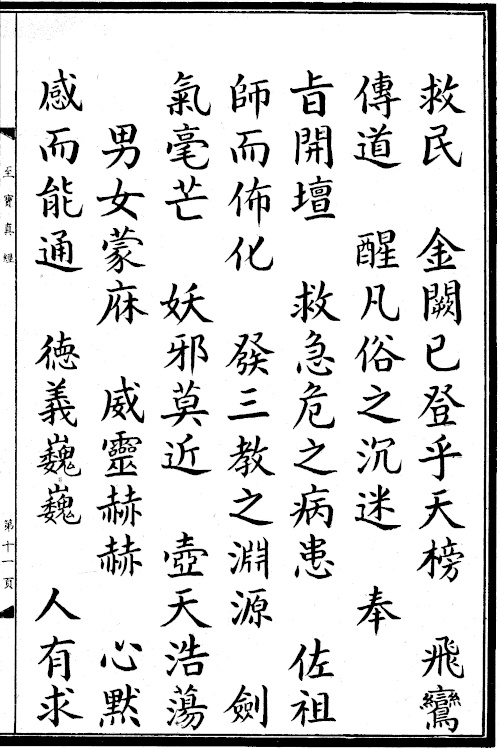 救民　金闕已登乎天榜　飛鸞
傳道　醒凡俗之沉迷　奉
旨開壇　救急危之病患　佐祖
師而佈化　發三教之淵源　劍
氣毫芒　妖邪莫近　壺天浩蕩
男女蒙庥　威靈赫赫　心默
感而能通　德義巍巍　人有求
至寶真經
第十一頁